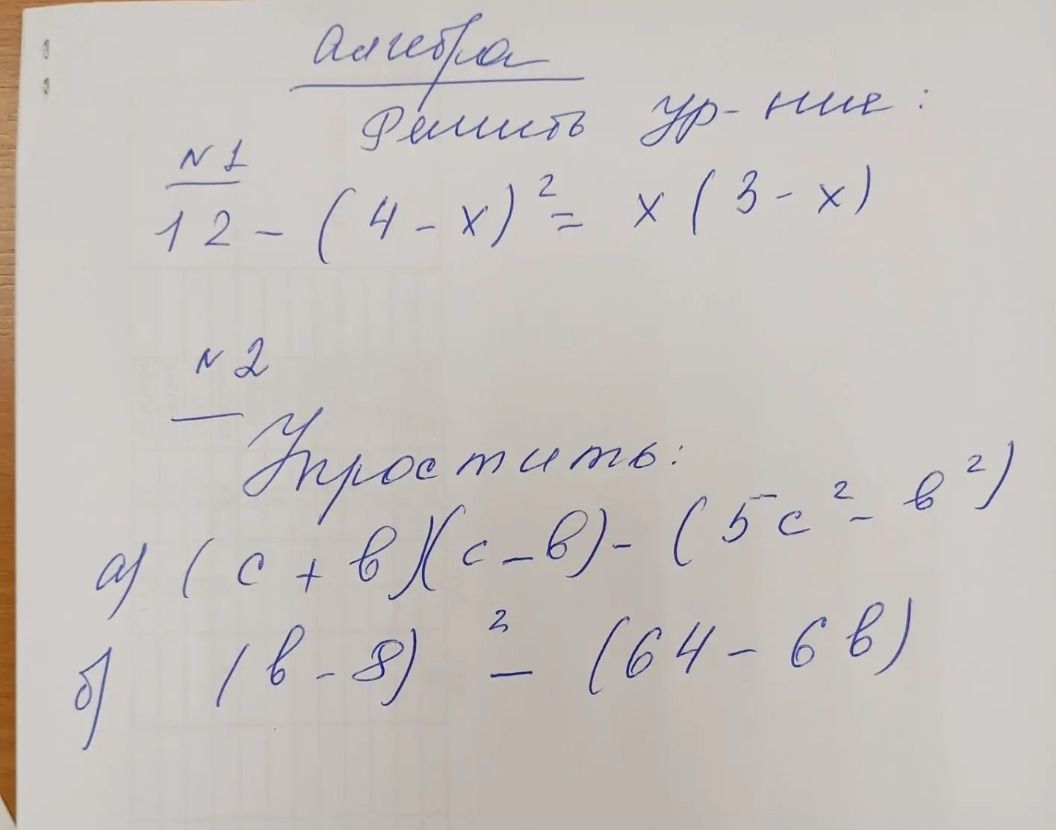 Алгебра
Решить ур-ние:
N 1
12 - (4 - x)² = x (3 - x)
N 2
Упростить:
а) (c + b)(c - b) - (5c² - b²)
б) (b - 8)² - (64 - 6b)